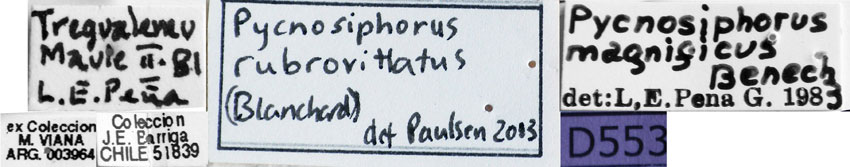 Tregualemu
Maule II-81
L.E. Peña
Pycnosiphorus
rubrovittatus
(Blanchard)
det Paulsen 2013
Pycnosiphorus
magnificus
Benech
det: L,E. Pena G. 1983
ex Coleccion
M. VIANA
ARG. 003964
Coleccion
J.E. Barriga
CHILE 51839
D553